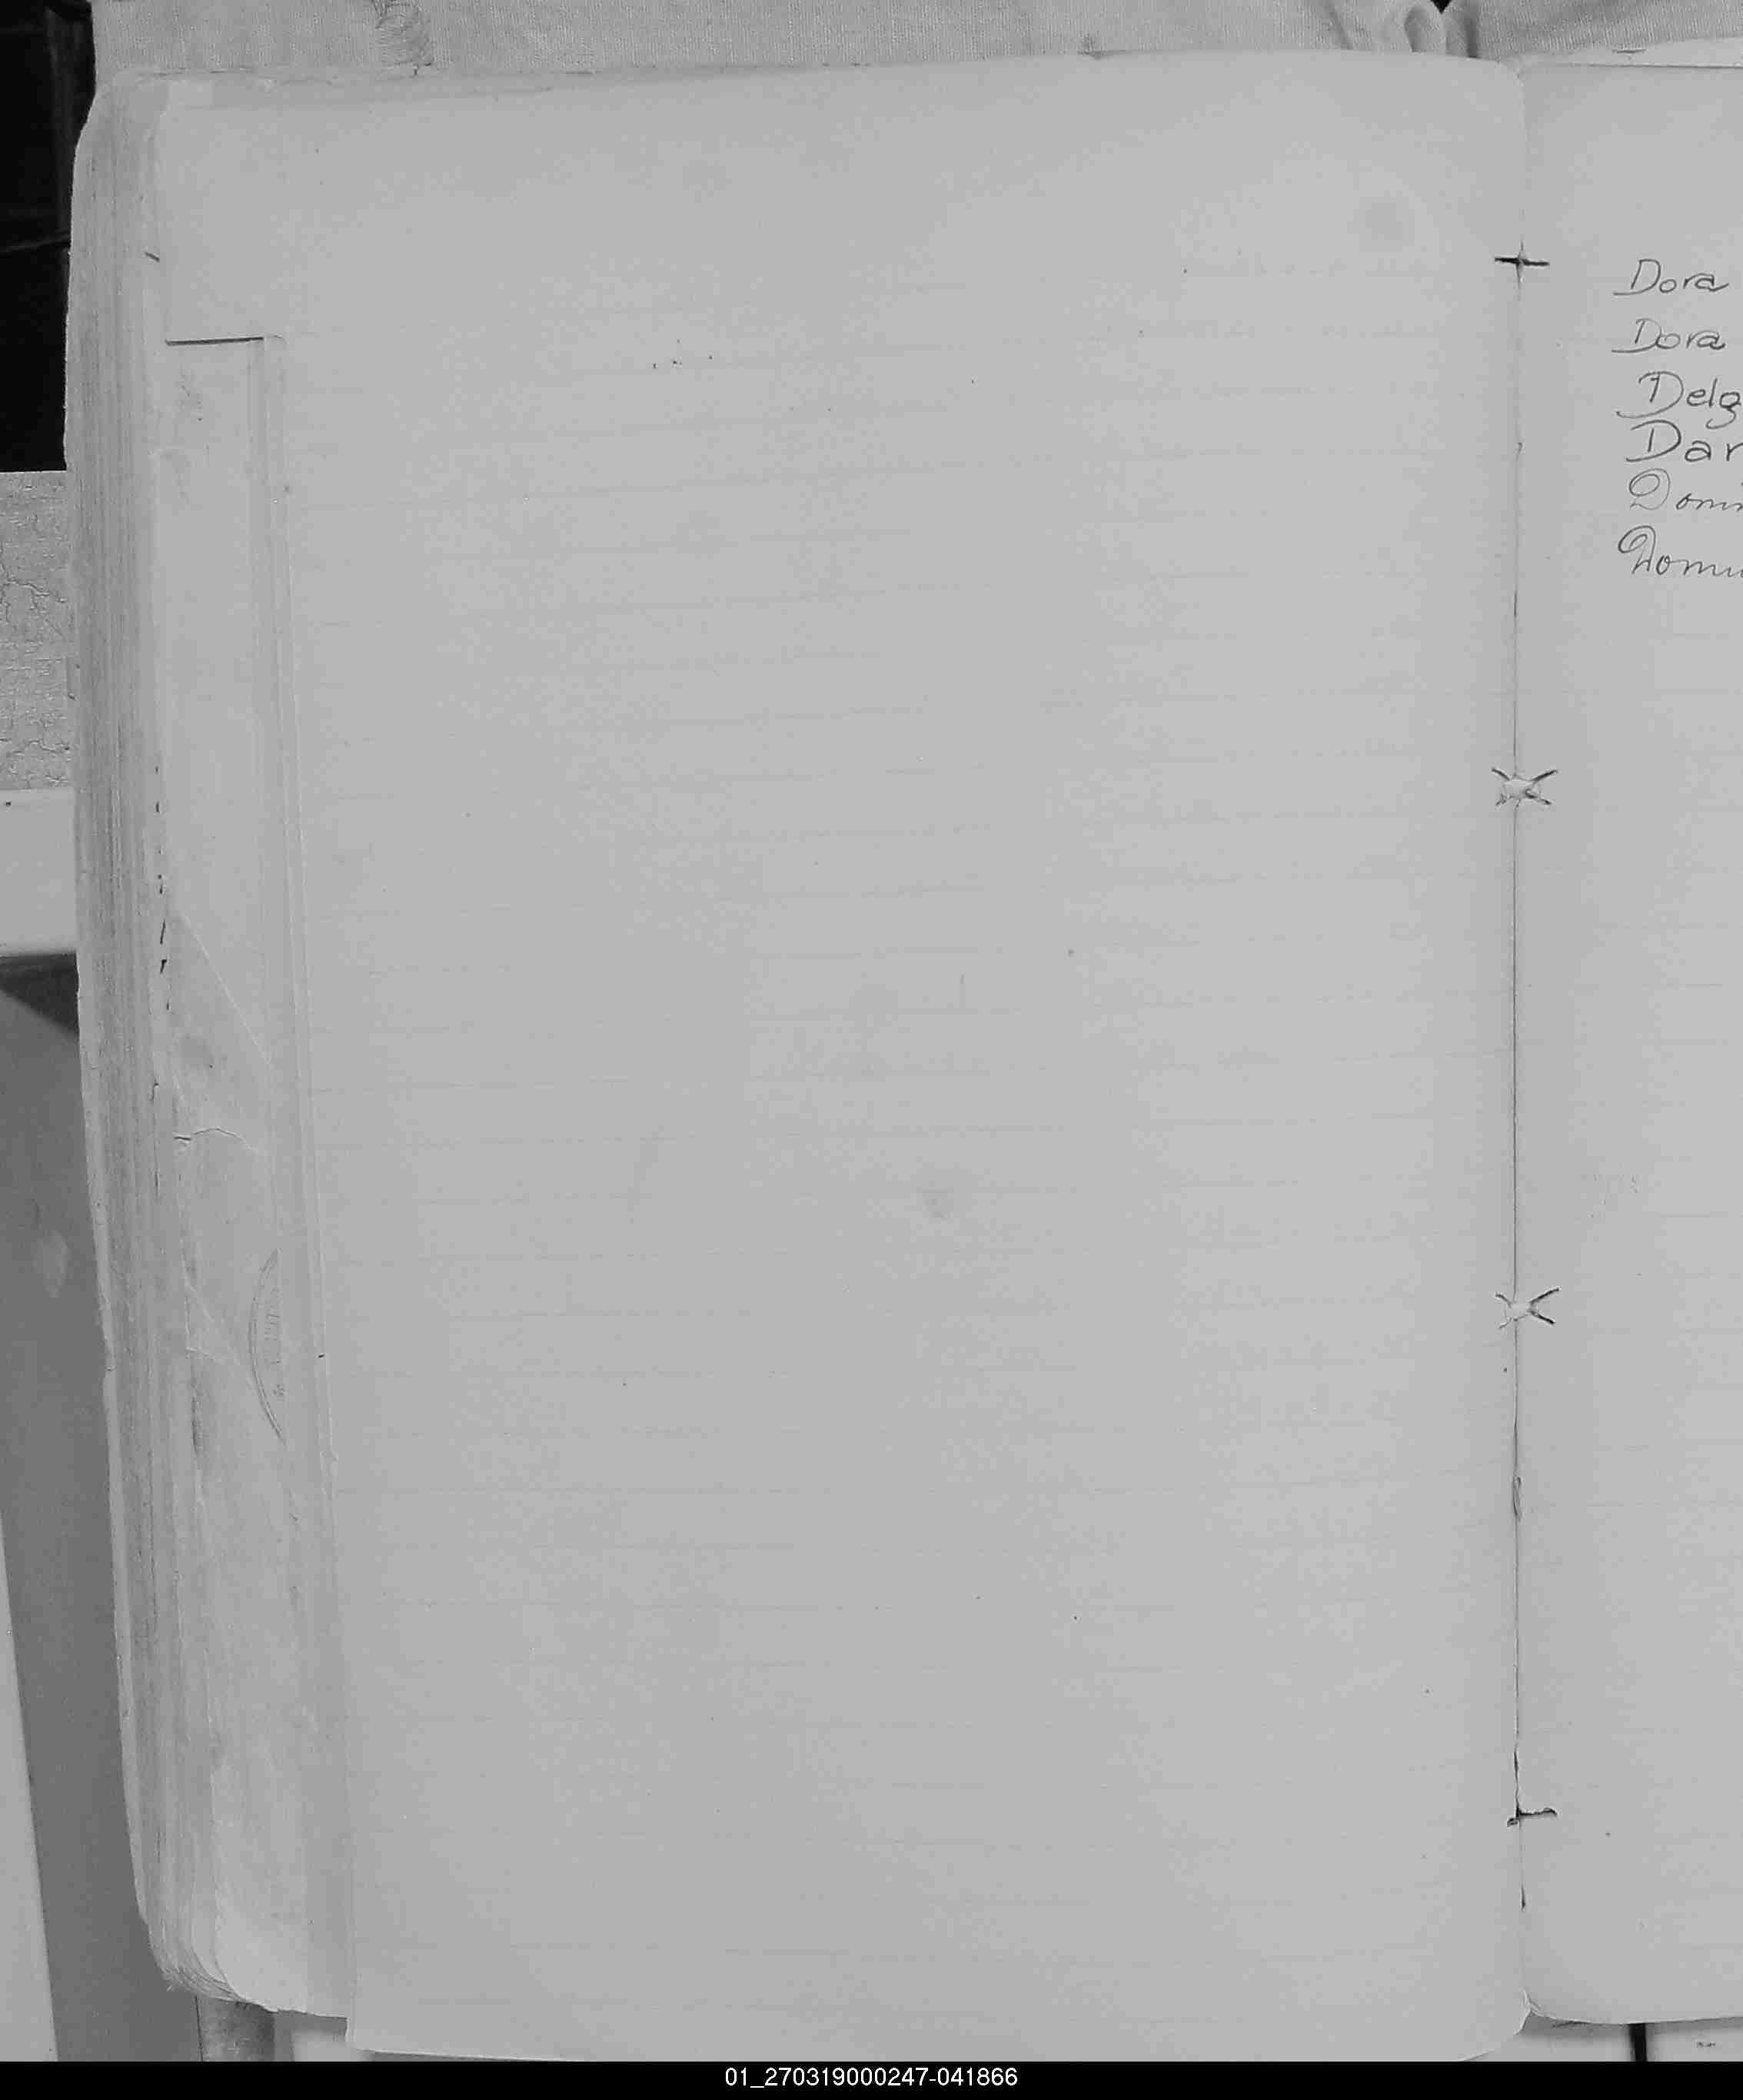 Dora
Dora
Delg
Dar
Domi
01_270319000247-041866